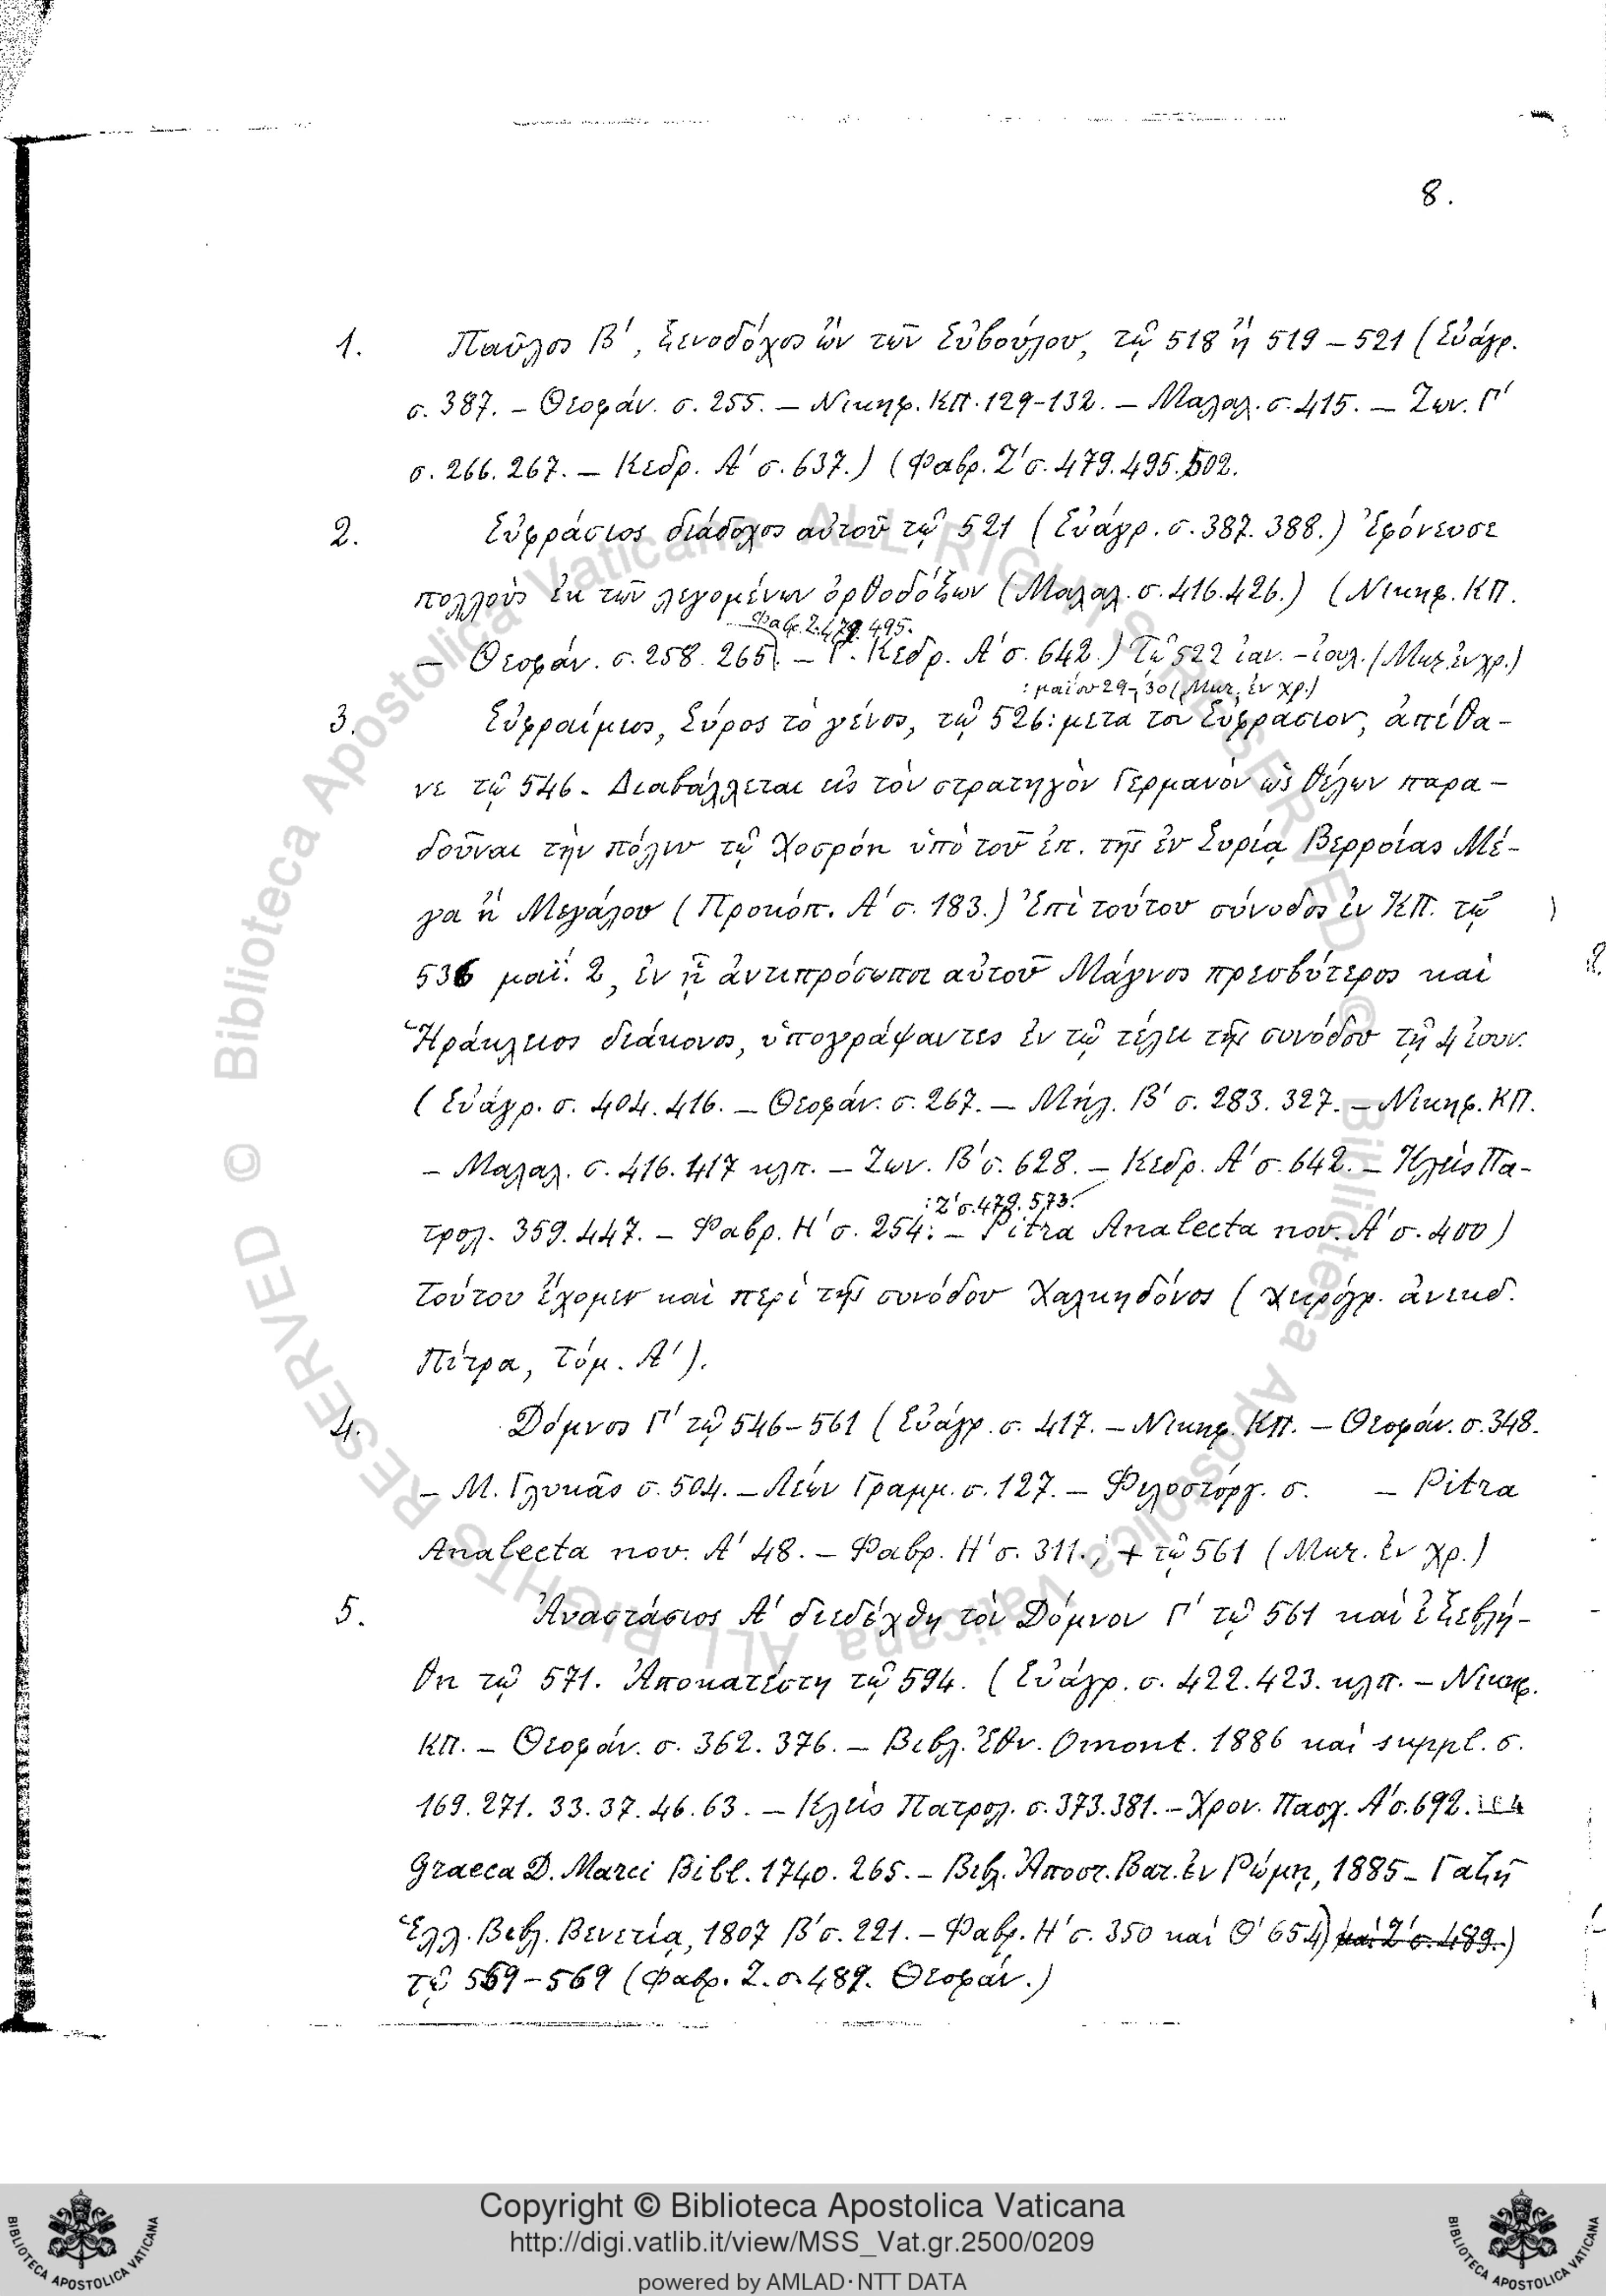 8.
1. Παῦλος Β΄, ξενοδόχος ὢν τῶν Εὐβούλου, τῷ 518 ἢ 519 – 521 (Εὐάγρ.
σ. 387. – Θεοφάν. σ. 255. – Νικηφ. ΚΠ. 129-132. – Μαλαλ. σ. 415. – Ζων. Γ΄
σ. 266. 267. – Κεδρ. Α΄ σ. 637.) (Φαβρ. Ζ΄ σ. 479. 495. 502.
2. Εὐφράσιος διάδοχος αὐτοῦ τῷ 521 (Εὐάγρ. σ. 387. 388.) Ἐφόνευσε
πολλοὺς ἐκ τῶν λεγομένων ὀρθοδόξων (Μαλαλ. σ. 416. 426.) (Νικηφ. ΚΠ.
Φαβρ. Ζ. 479. 495.
– Θεοφάν. σ. 258. 265. – Γ. Κεδρ. Α΄ σ. 642.) Τῷ 522 ἰαν. – ἰουλ. (Μικ. ἐν χρ.)
: μαΐου 29-30 (Μικ. ἐν χρ.)
3. Εὐφραίμιος, Σύρος τὸ γένος, τῷ 526: μετὰ τὸν Εὐφράσιον, ἀπέθα-
νε τῷ 546. Διαβάλλεται εἰς τὸν στρατηγὸν Γερμανὸν ὡς θέλων παρα-
δοῦναι τὴν πόλιν τῷ Χοσρόῃ ὑπὸ τοῦ ἐπ. τῆς ἐν Συρίᾳ Βερροίας Μέ-
γα ἢ Μεγάλου (Προκόπ. Α΄ σ. 183.) Ἐπὶ τούτου σύνοδος ἐν ΚΠ. τῷ
536 μαΐ. 2, ἐν ᾗ ἀντιπρόσωποι αὐτοῦ Μάγνος πρεσβύτερος καὶ
Ἡράκλειος διάκονος, ὑπογράψαντες ἐν τῷ τέλει τῆς συνόδου τῇ 4 ἰουν.
(Εὐάγρ. σ. 404. 416. – Θεοφάν. σ. 267. – Μήλ. Β΄ σ. 283. 327. – Νικηφ. ΚΠ.
– Μαλαλ. σ. 416. 417 κλπ. – Ζων. Β΄ σ. 628. – Κεδρ. Α΄ σ. 642. – Κλεὶς Πα-
: Ζ΄ σ. 479. 573.
τρολ. 359. 447. – Φαβρ. Η΄ σ. 254: – Pitra Analecta nov. Α΄ σ. 400)
Τούτου ἔχομεν καὶ περὶ τῆς συνόδου Χαλκηδόνος (χειρόγρ. ἀνεκδ.
Πίτρα, Τόμ. Α΄).
4. Δόμνος Γ΄ τῷ 546-561 (Εὐάγρ. σ. 417. – Νικηφ. ΚΠ. – Θεοφάν. σ. 348.
– Μ. Γλυκᾶς σ. 504. – Λέων Γραμμ. σ. 127. – Φιλοστόργ. σ. – Pitra
Analecta nov. Α΄ 48. – Φαβρ. Η΄ σ. 311.; + τῷ 561 (Μικ. ἐν χρ.)
5. Ἀναστάσιος Α΄ διεδέχθη τὸν Δόμνον Γ΄ τῷ 561 καὶ ἐξεβλή-
θη τῷ 571. Ἀποκατέστη τῷ 594. (Εὐάγρ. σ. 422. 423. κλπ. – Νικηφ.
ΚΠ. – Θεοφάν. σ. 362. 376. – Βιβλ. Ἐθν. Omont. 1886 καὶ suppl. σ.
169. 271. 33. 37. 46. 63. – Κλεὶς Πατρολ. σ. 373. 381. – Χρον. Πασχ. Α΄ σ. 692.
Graeca D. Marci Bibl. 1740. 265. – Βιβλ. Ἀποστ. Βατ. ἐν Ρώμῃ, 1885 – Γαζῆ
Ἑλλ. Βιβλ. Βενετία, 1807 Β΄ σ. 221. – Φαβρ. Η΄ σ. 350 καὶ Θ΄ 654) καὶ Ζ΄ σ. 489.)
τῷ 559-569 (Φαβρ. Ζ. σ. 489. Θεοφάν.)
© Biblioteca Apostolica Vaticana ALL RIGHTS RESERVED
Copyright © Biblioteca Apostolica Vaticana
http://digi.vatlib.it/view/MSS_Vat.gr.2500/0209
powered by AMLAD·NTT DATA
BIBLIOTECA APOSTOLICA VATICANA
BIBLIOTECA APOSTOLICA VATICANA